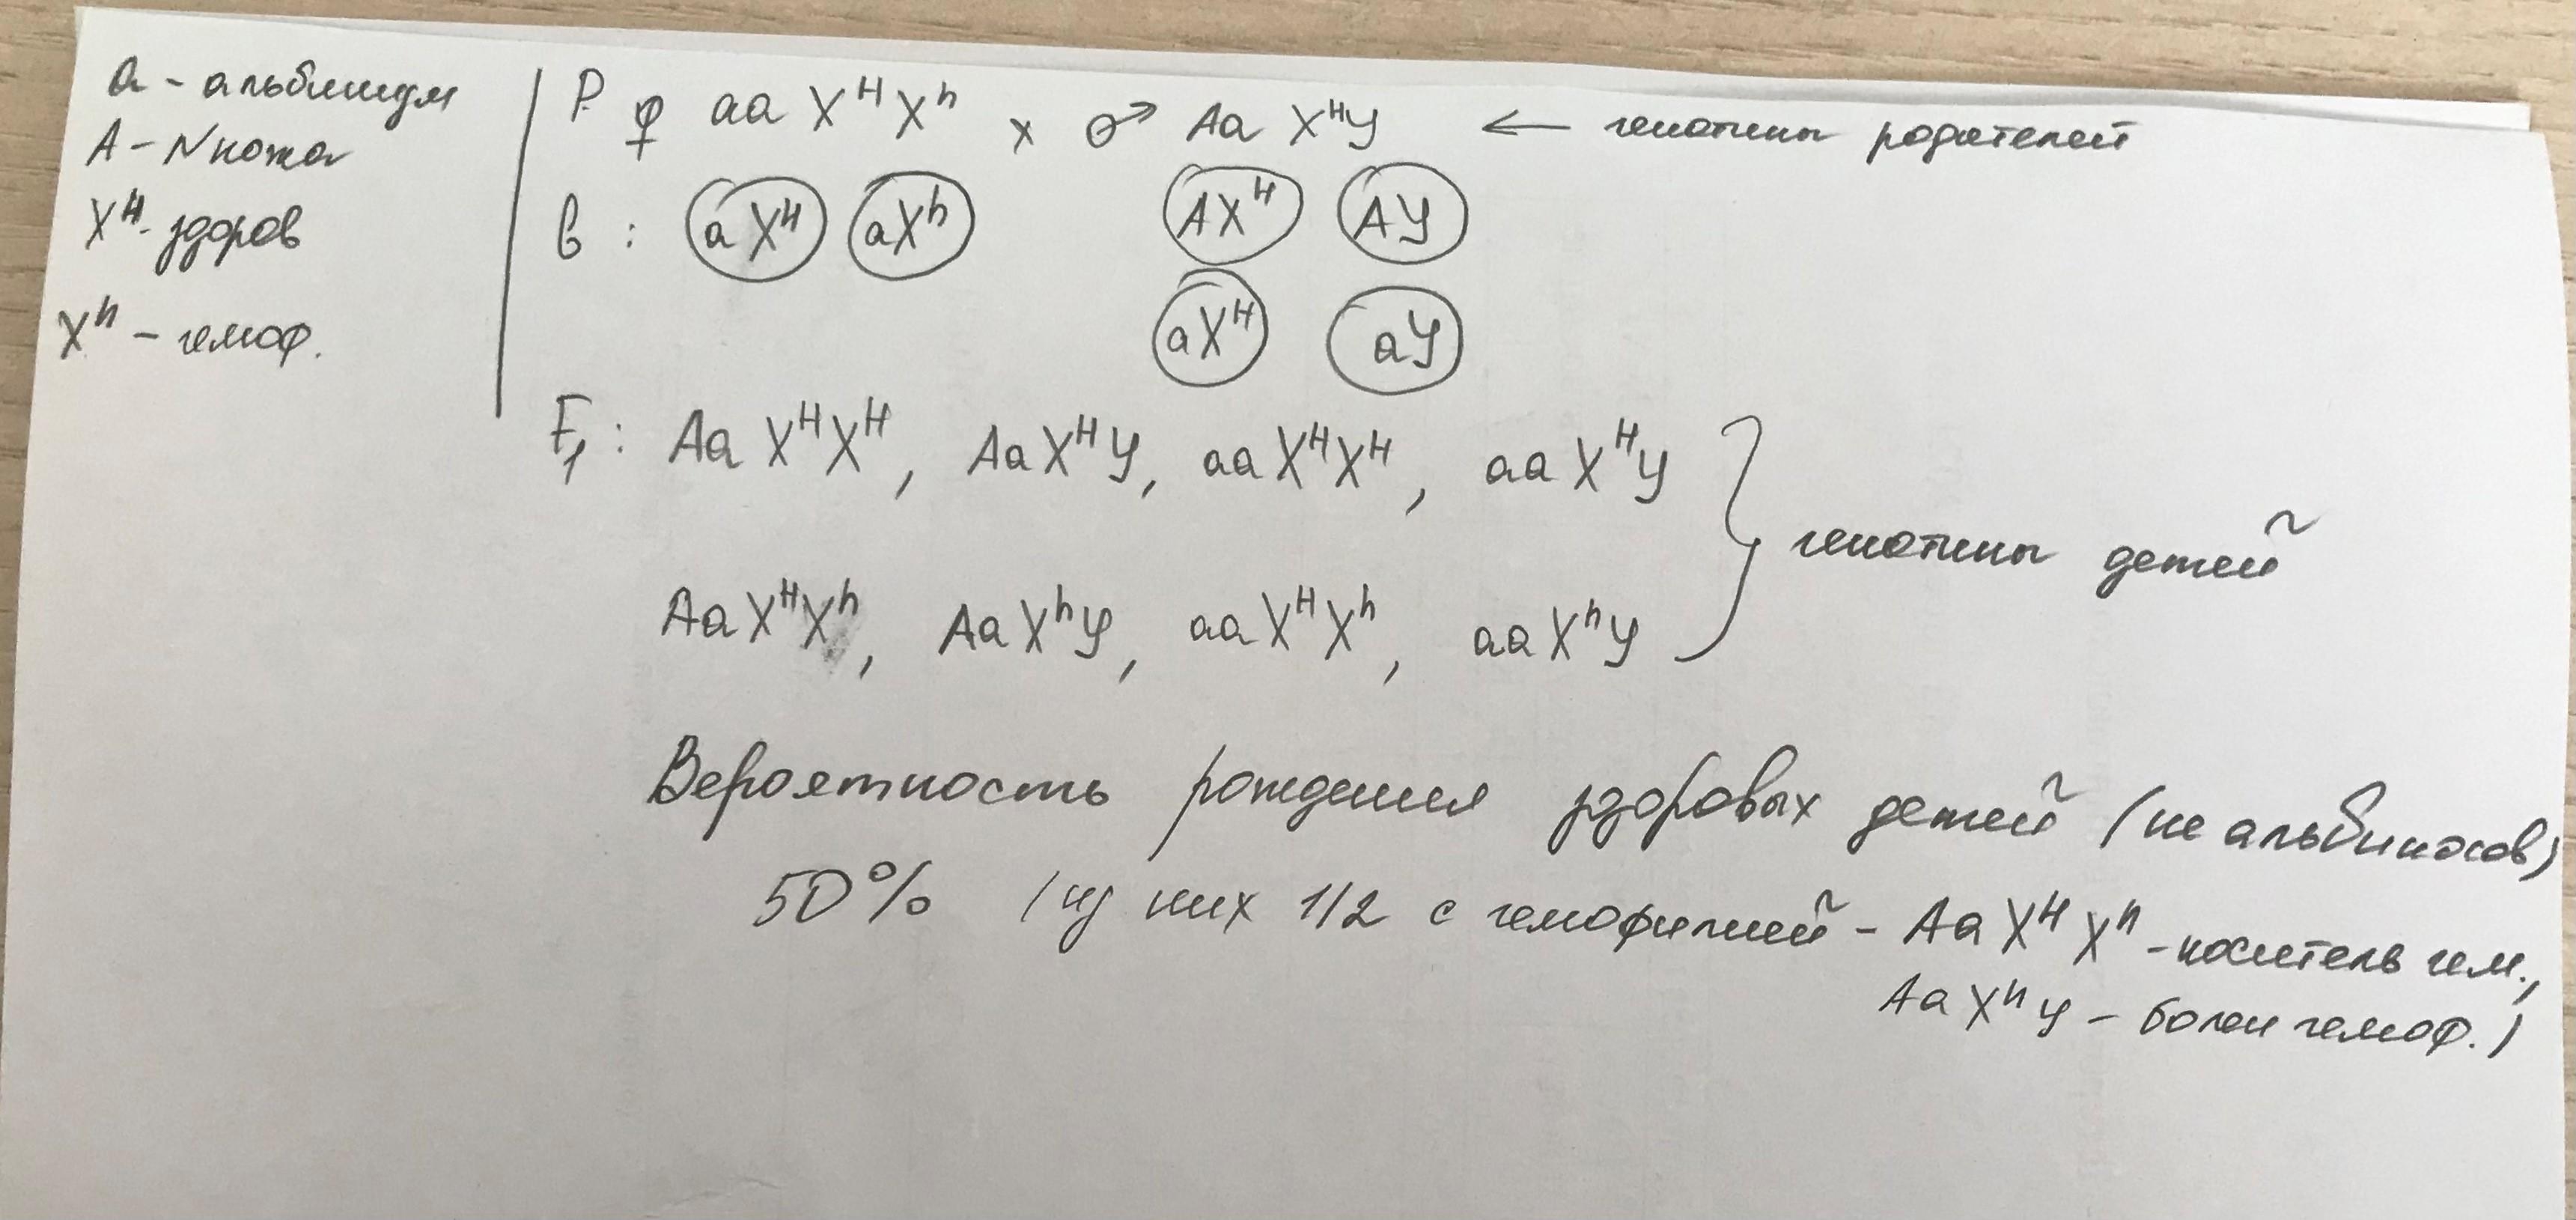 a - альбинизм
A - N кожа
Xᴴ - здоров
Xʰ - гемоф.
P ♀ aa XᴴXʰ x ♂ Aa XᴴY ← генотипы родителей
G : aXᴴ aXʰ AXᴴ AY
aXᴴ aY
F₁ : Aa XᴴXᴴ, Aa XᴴY, aa XᴴXᴴ, aa XᴴY
Aa XᴴXʰ, Aa XʰY, aa XᴴXʰ, aa XʰY
генотипы детей
Вероятность рождения здоровых детей (не альбиносов)
50% (из них 1/2 с гемофилией - Aa XᴴXʰ - носитель гем.,
Aa XʰY - болен гемоф.)